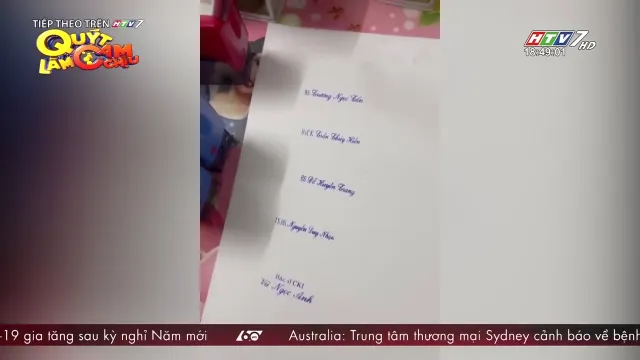 TIẾP THEO TRÊN HTV7
QUÝT LÀM CAM CHỊU
HTV7 HD
18:49:01
BS Trương Ngọc Tấn
Trần Thúy Hiền
BS Đỗ Huyền Trang
Nguyễn Duy Nhạn
Bác sĩ CKI
Vũ Ngọc Anh
-19 gia tăng sau kỳ nghỉ Năm mới
60
Australia: Trung tâm thương mại Sydney cảnh báo về bệnh